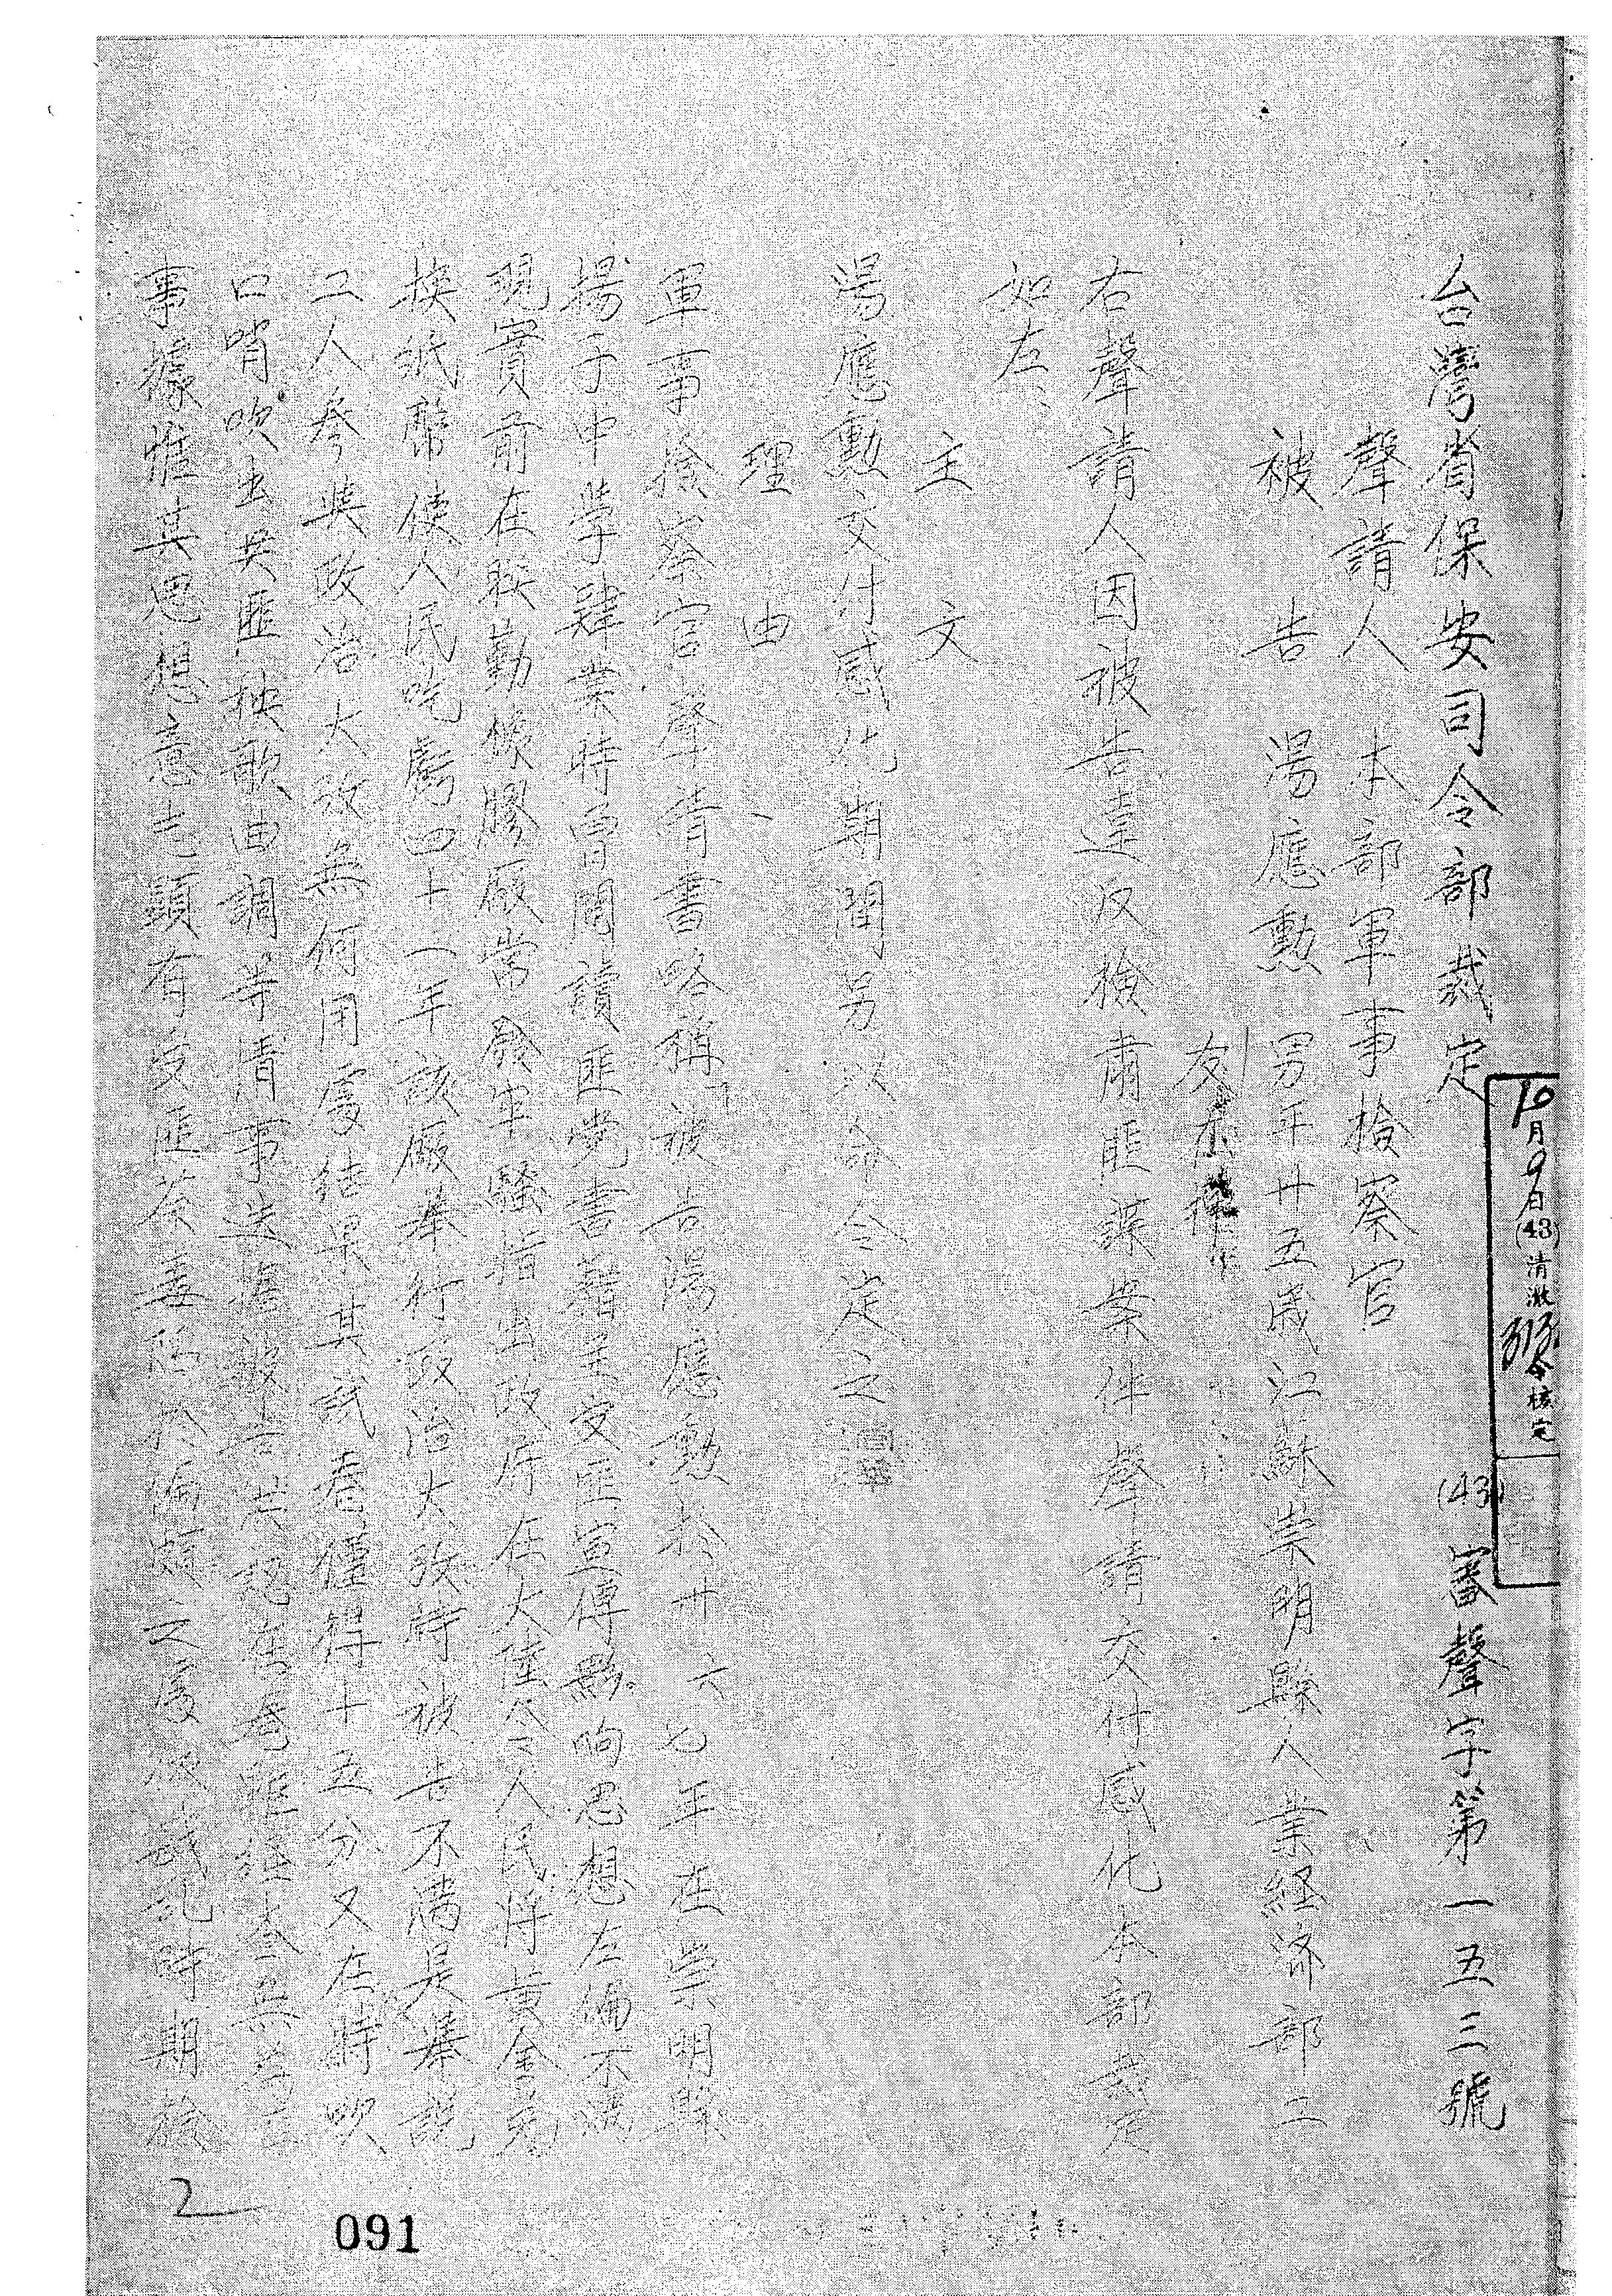 台灣省保安司令部裁定
(43)審聲字第一五三號
10月9日(43)清澈
令核定
聲請人 本部軍事檢察官
被告 湯應勳 男年廿五歲江蘇崇明縣人業經濟部工
友在押
右聲請人因被告違反檢肅匪諜案件聲請交付感化本部裁定
如左、
主文
湯應勳交付感化期間另以命令定之
理由
軍事檢察官聲請書略稱「被告湯應勳於卅六七年在崇明縣
揚子中學肄業時曾閱讀匪党書籍至受匪宣傳影响思想左傾不滿
現實前在聯勤橡膠廠常發牢騷指出政府在大陸令人民將黃金兌
換紙幣使人民吃虧四十二年該廠舉行政治大攷時被告不滿是舉說
工人參與政治大攷無何用處結果其試卷僅得十五分又在持吹
口哨吹出共匪秧歌曲調等情事迭據被告供認在卷雖經查無為匪
事據惟其思想意志顯有受匪荼毒陷於偏頗之處茲戡乱時期檢
2
091